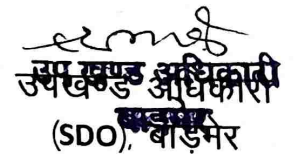 उप खण्ड अधिकारी
उपखण्ड अधिकारी
बाड़मेर
(SDO), बाड़मेर